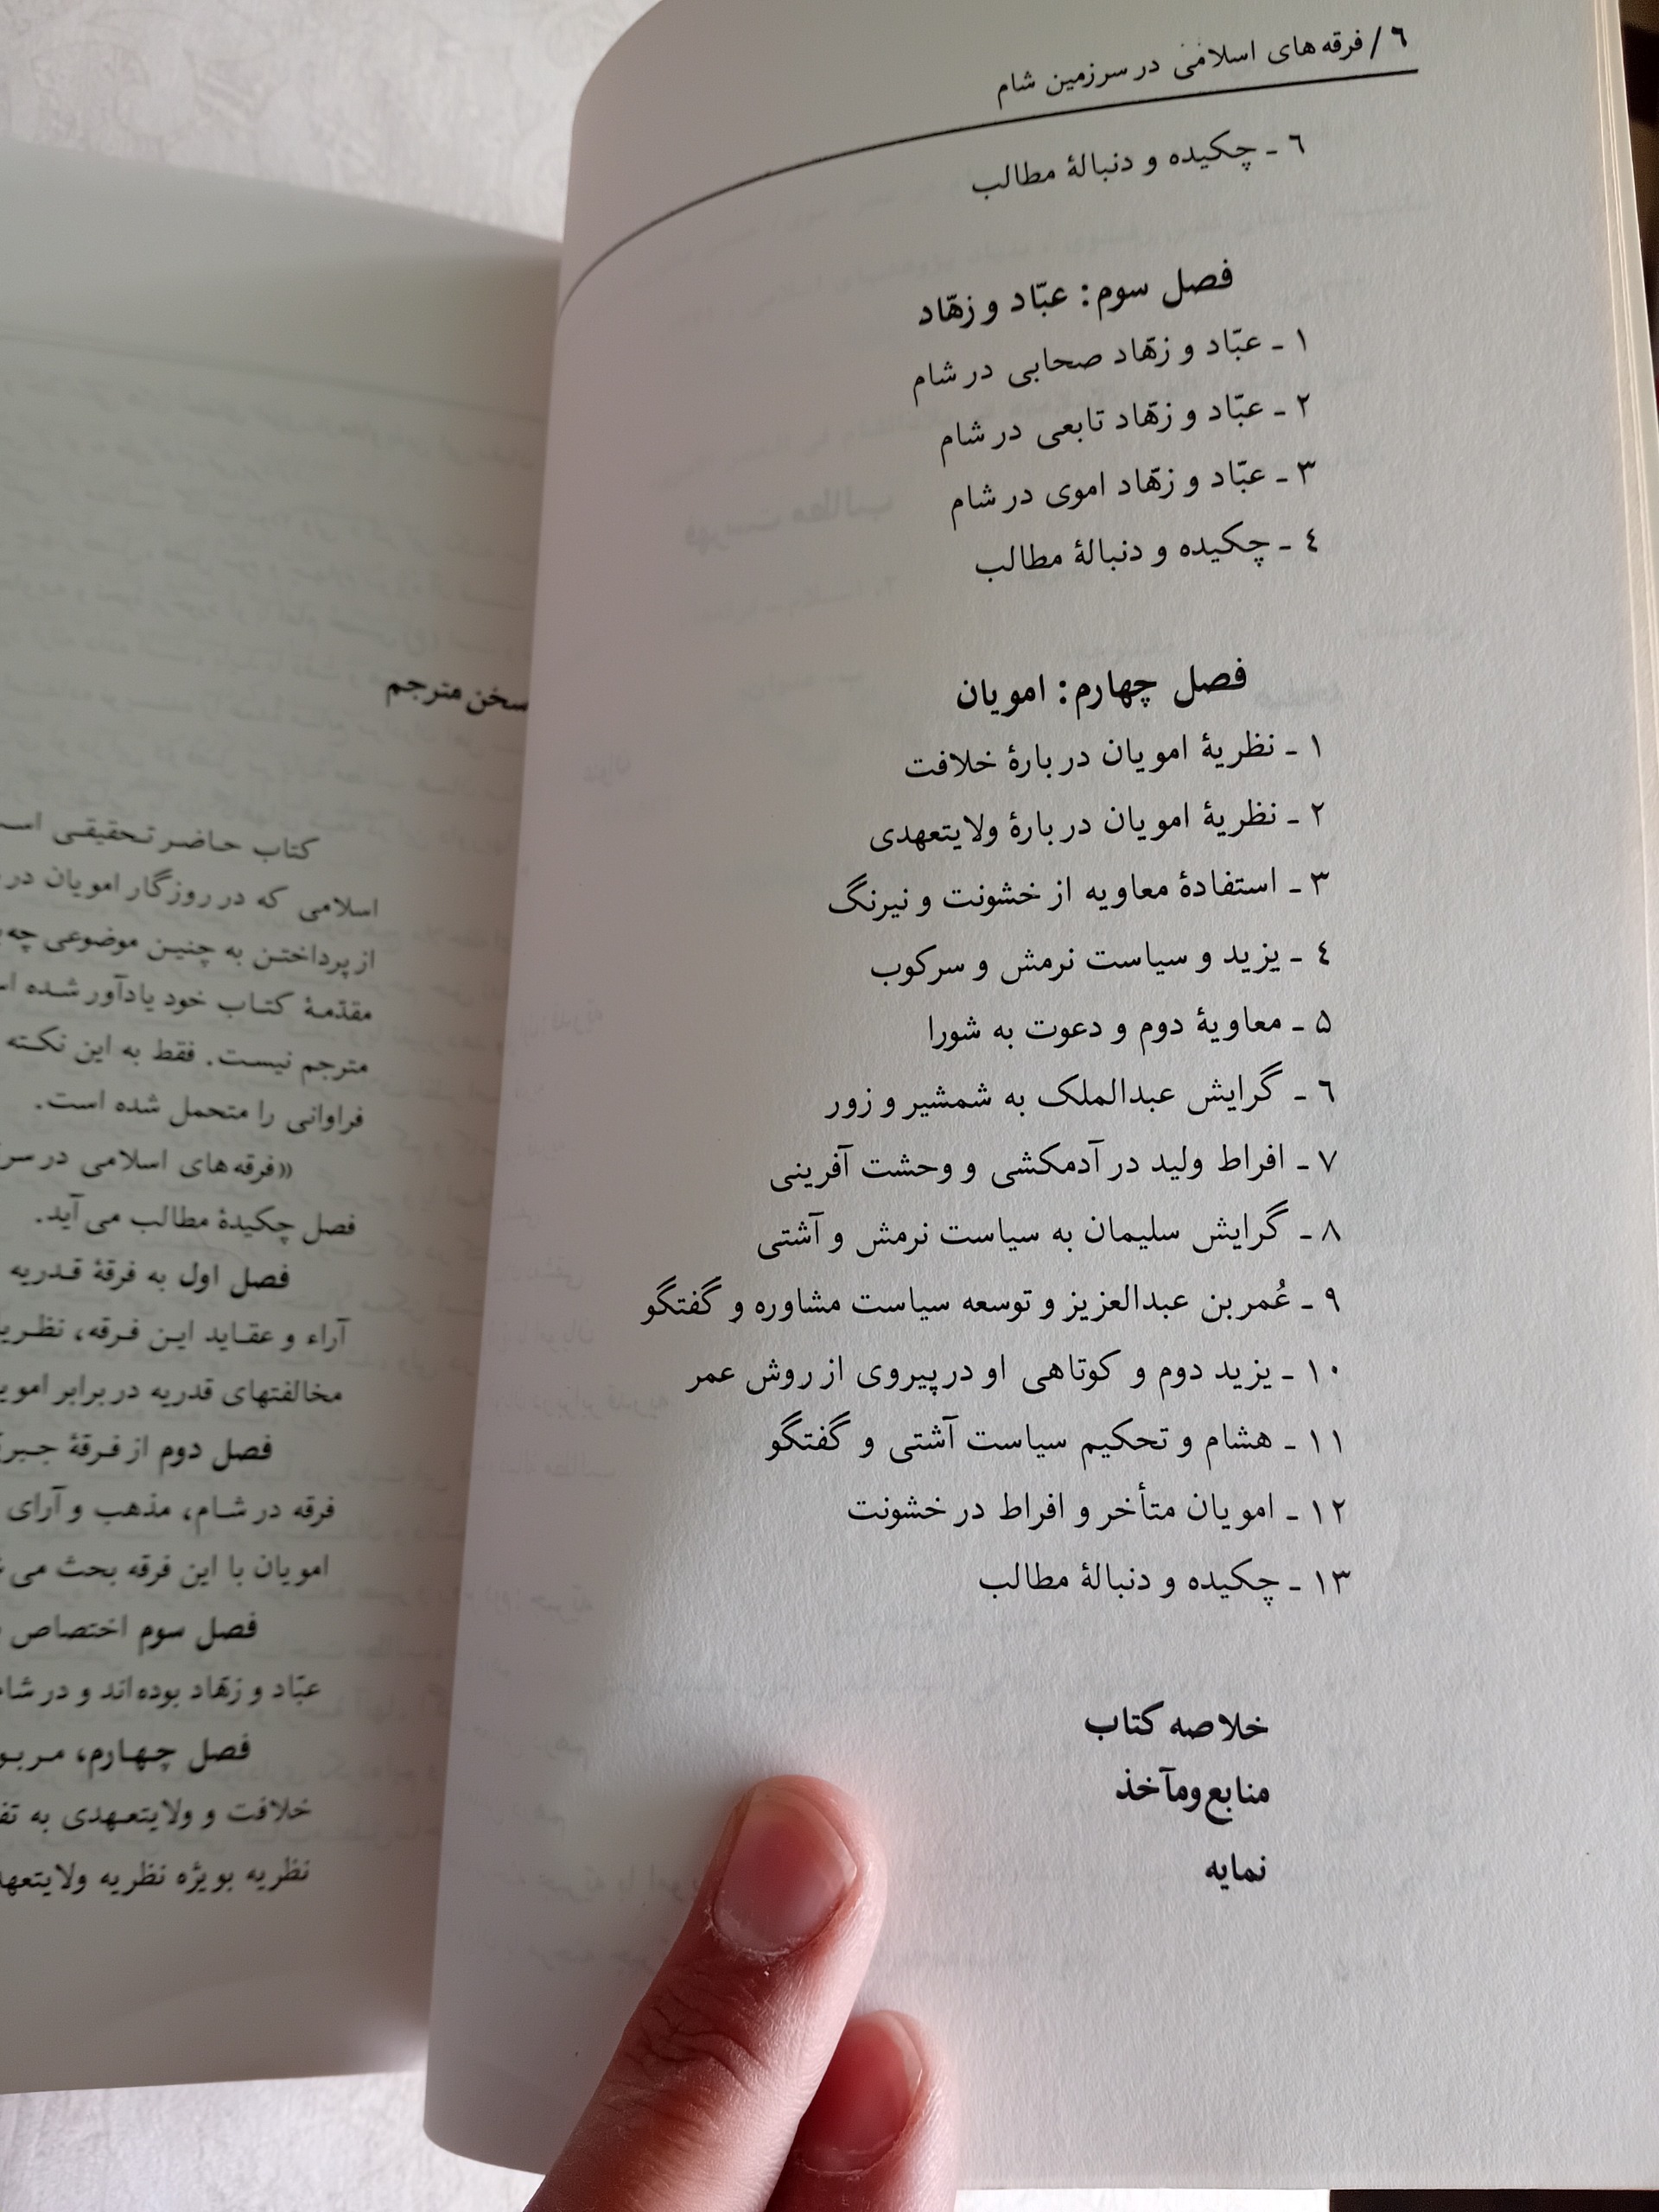 ٦ / فرقه های اسلامی در سرزمین شام
٦ ـ چکیده و دنبالهٔ مطالب
فصل سوم: عبّاد و زهّاد
١ ـ عبّاد و زهّاد صحابی در شام
٢ ـ عبّاد و زهّاد تابعی در شام
٣ ـ عبّاد و زهّاد اموی در شام
٤ ـ چکیده و دنبالهٔ مطالب
فصل چهارم: امویان
١ ـ نظریهٔ امویان دربارهٔ خلافت
٢ ـ نظریهٔ امویان دربارهٔ ولایتعهدی
٣ ـ استفادهٔ معاویه از خشونت و نیرنگ
٤ ـ یزید و سیاست نرمش و سرکوب
۵ ـ معاویهٔ دوم و دعوت به شورا
٦ ـ گرایش عبدالملک به شمشیر و زور
٧ ـ افراط ولید در آدمکشی و وحشت آفرینی
٨ ـ گرایش سلیمان به سیاست نرمش و آشتی
٩ ـ عُمر بن عبدالعزیز و توسعه سیاست مشاوره و گفتگو
١٠ ـ یزید دوم و کوتاهی او در پیروی از روش عمر
١١ ـ هشام و تحکیم سیاست آشتی و گفتگو
١٢ ـ امویان متأخر و افراط در خشونت
١٣ ـ چکیده و دنبالهٔ مطالب
خلاصه کتاب
منابع ومآخذ
نمایه
سخن مترجم
کتاب حاضر تحقیقی
اسلامی که در روزگار امویان در
از پرداختن به چنین موضوعی
مقدّمهٔ کتاب خود یادآور شده
مترجم نیست. فقط به این نکته
فراوانی را متحمل شده است.
«فرقه های اسلامی در
فصل چکیدهٔ مطالب می آید.
فصل اول به فرقهٔ قدریه
آراء و عقاید این فرقه،
مخالفتهای قدریه در برابر
فصل دوم از فرقهٔ
فرقه در شام، مذهب و آرای
امویان با این فرقه بحث می
فصل سوم اختصاص
عبّاد و زهّاد بوده اند و در
فصل چهارم،
خلافت و ولایتعهدی به
نظریه بویژه نظریه